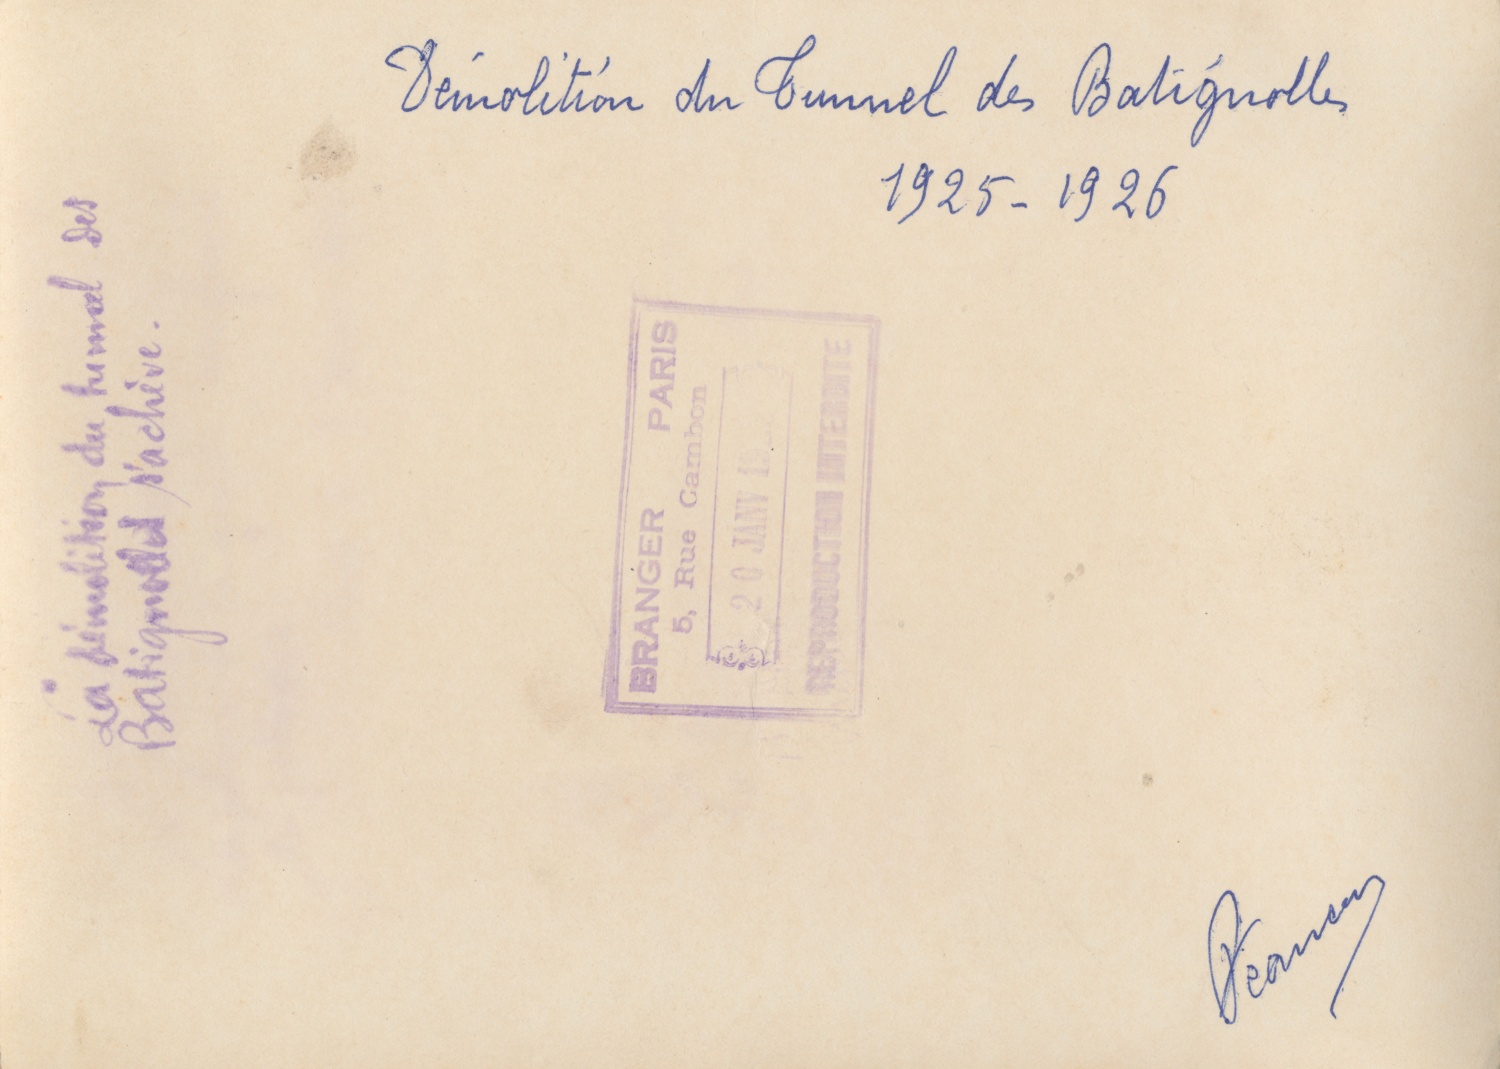 Démolition du Tunnel des Batignolles
1925-1926
La démolition du tunnel des
Batignolles s'achève.
BRANGER PARIS
5, Rue Cambon
20 JANV 19
REPRODUCTION INTERDITE